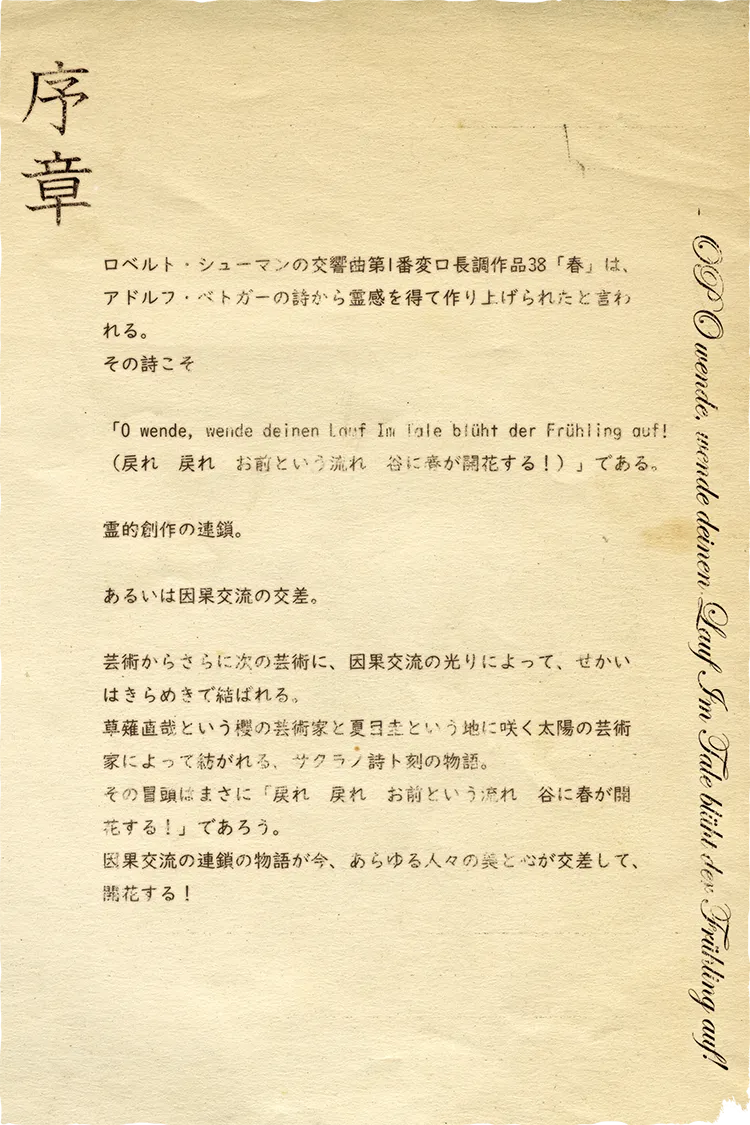 序章
ロベルト・シューマンの交響曲第1番変ロ長調作品38「春」は、
アドルフ・ベトガーの詩から霊感を得て作り上げられたと言わ
れる。
その詩こそ
「O wende, wende deinen Lauf Im Tale blüht der Frühling auf!
（戻れ　戻れ　お前という流れ　谷に春が開花する！）」である。
霊的創作の連鎖。
あるいは因果交流の交差。
芸術からさらに次の芸術に、因果交流の光りによって、せかい
はきらめきで結ばれる。
草薙直哉という櫻の芸術家と夏目圭という地に咲く太陽の芸術
家によって紡がれる、サクラノ詩ト刻の物語。
その冒頭はまさに「戻れ　戻れ　お前という流れ　谷に春が開
花する！」であろう。
因果交流の連鎖の物語が今、あらゆる人々の美と心が交差して、
開花する！
- OP O wende, wende deinen Lauf Im Tale blüht der Frühling auf!